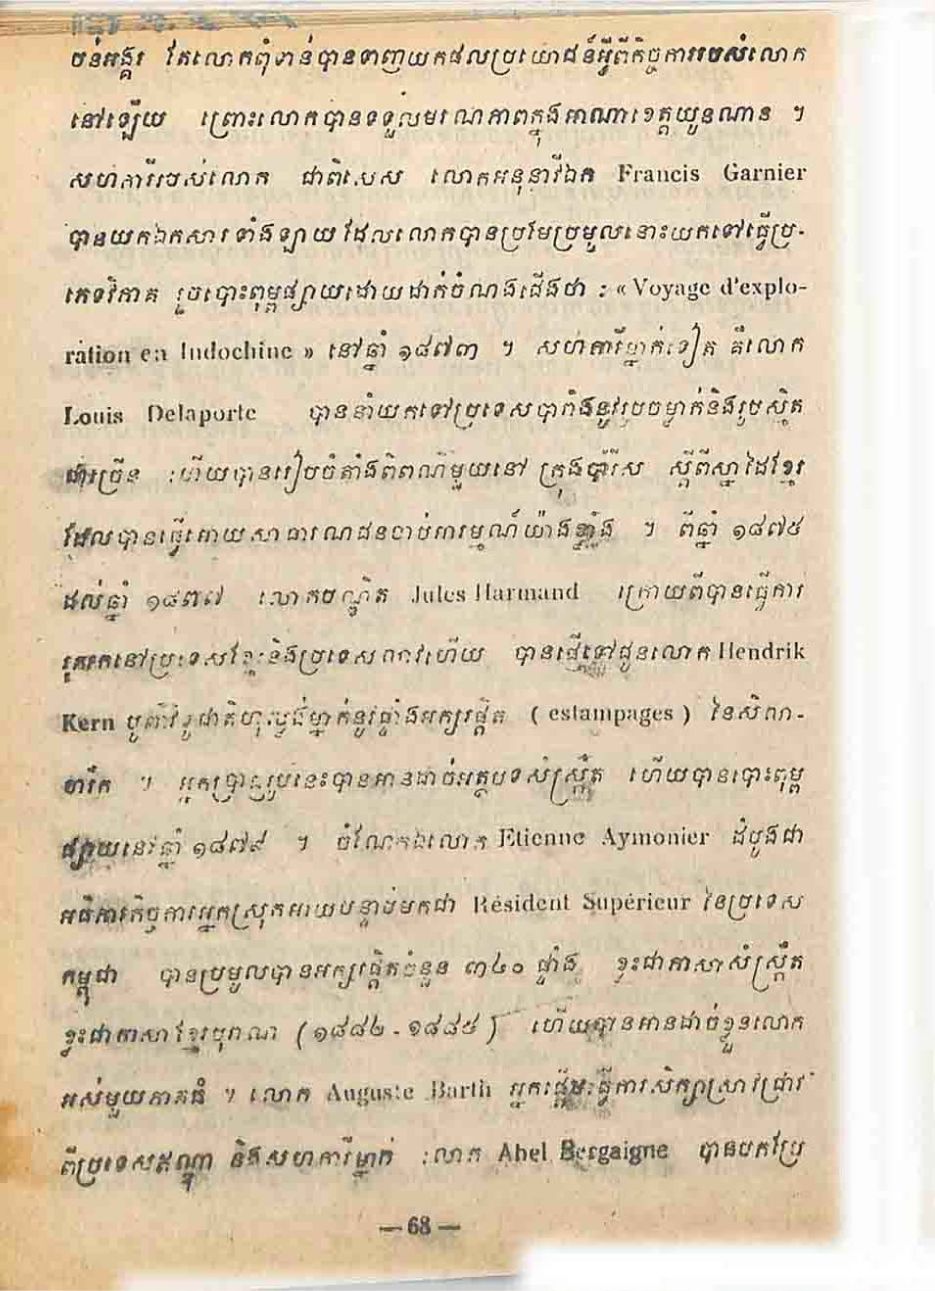 បន់អង្គរ តែលោកពុំទាន់បានទាញយកផលប្រយោជន៍អ្វីពីកិច្ចការរបស់លោក
នៅឡើយ ព្រោះលោកបានទទួលមរណភាពក្នុងអាណាខេត្តយូនណាន ។
សហការីរបស់លោក ជាពិសេស លោកអនុនាវីឯក Francis Garnier
បានយកឯកសារទាំងឡាយដែលលោកបានប្រមែប្រមូលនោះយកទៅធ្វើប្រ-
ភេទវិភាគ រួចបោះពុម្ពផ្សាយដោយដាក់ចំណងជើងថា : « Voyage d'explo-
ration en Indochine » នៅឆ្នាំ ១៨៧៣ ។ សហការីម្នាក់ទៀត គឺលោក
Louis Delaporte បាននាំយកទៅប្រទេសបារាំងនូវរូបចម្លាក់និងរូបស្មិត
ជាច្រើន ហើយបានរៀបចំតាំងពិពណ៌មួយនៅ ក្រុងប៉ារីស ស្ដីពីស្នាដៃខ្មែរ
ដែលបានធ្វើអោយសាធារណជនចាប់អារម្មណ៍យ៉ាងខ្លាំង ។ ពីឆ្នាំ ១៨៧៥
ដល់ឆ្នាំ ១៨៧៧ លោកបណ្ឌិត Jules Harmand ក្រោយពីបានធ្វើការ
រុករកនៅប្រទេសខ្មែរនិងប្រទេសលាវហើយ បានផ្ញើទៅជូនលោក Hendrik
Kern បូព៌ាវិទូជាតិហុល្លង់ម្នាក់នូវផ្ទាំងអក្សរផ្តិត ( estampages ) នៃសិលា-
ចារឹក ។ អ្នកប្រាជ្ញរូបនេះបានអានដាច់អត្ថបទសំស្ក្រឹត ហើយបានបោះពុម្ព
ផ្សាយនៅឆ្នាំ ១៨៧៩ ។ ចំណែកឯលោក Etienne Aymonier ដំបូងជា
អធិការកិច្ចការអ្នកស្រុកអាយបន្ទាប់មកជា Résident Supérieur នៃប្រទេស
កម្ពុជា បានប្រមូលបានអក្សរផ្តិតចំនួន ៣៤០ ផ្ទាំង ខ្លះជាភាសាសំស្ក្រឹត
ខ្លះជាភាសាខ្មែរបុរាណ ( ១៨៨២ - ១៨៨៥ ) ហើយបានអានដាច់ខ្លួនលោក
អស់មួយភាគធំ ។ លោក Auguste Barth អ្នកផ្ដើមធ្វើការសិក្សាស្រាវជ្រាវ
ពីប្រទេសឥណ្ឌា និងសហការីម្នាក់ លោក Abel Bergaigne បានបកប្រែ
— 68 —